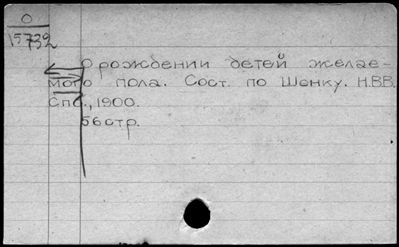 О
15732
О рождении детей желае-
мого пола. Сост. по Шенку. Н.В.В.
Спб., 1900.
56стр.